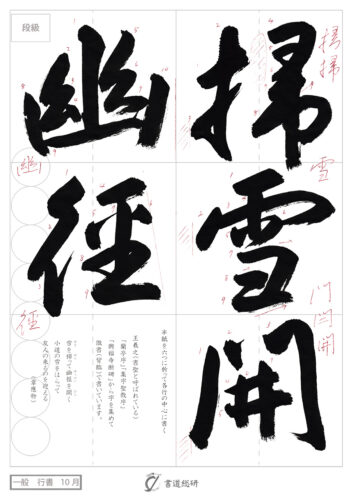 段級
掃雪開
幽徑
掃
掃
雪
開
幽
半紙を六つに折って各行の中心に書く
王羲之(書聖と呼ばれている)
「蘭亭序」「集字聖教序」
「興福寺断碑」から字を集めて
倣書(背臨)で書いています。
雪を掃って幽径を開く
小道の雪をはらって
友人の来るのを迎える
(韋應物)
一般 行書 10月
書道総研